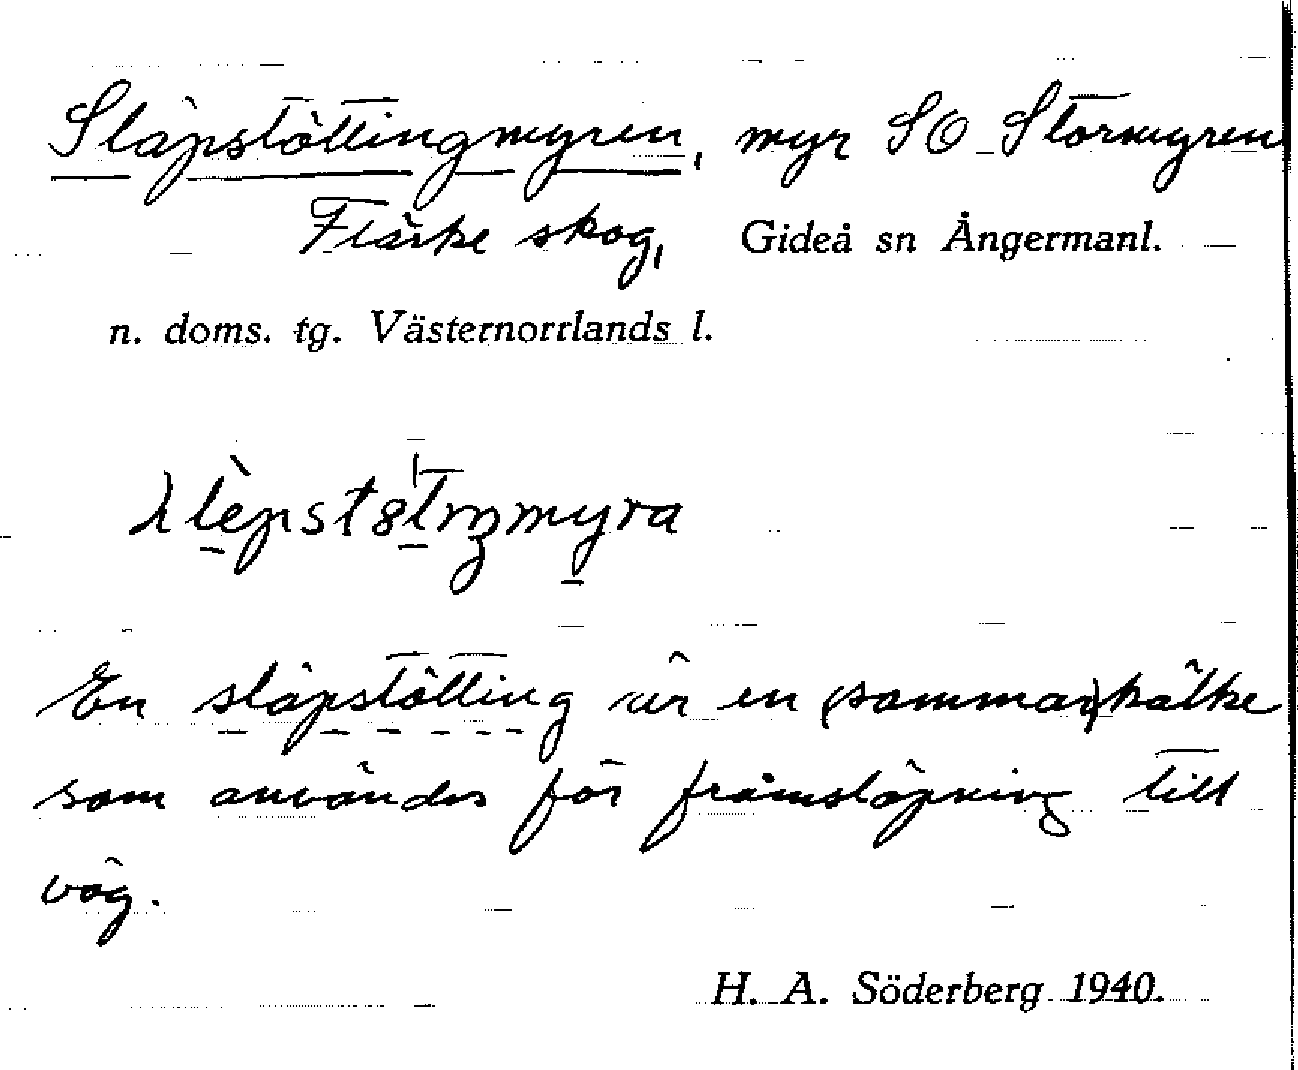 Släpstöttingmyren, myr SO Stormyren
Flärke skog, Gideå sn Ångermanl.
n. doms. tg. Västernorrlands l.
En släpstötting är en (sommar)kälke
som användes för framsläpning till
väg.
H. A. Söderberg 1940.